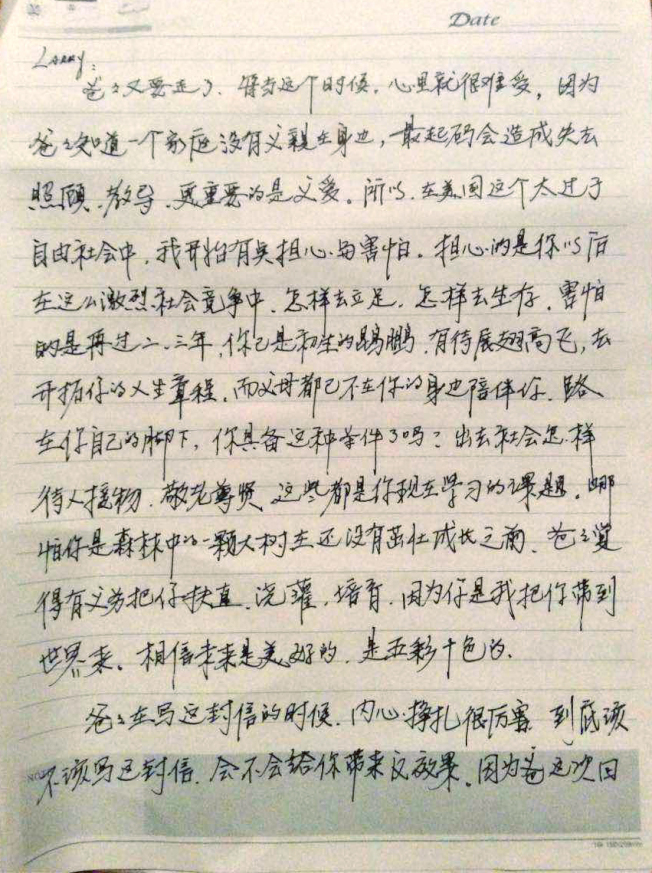 Date
LARRY:
爸々又要走了. 每当这个时候. 心里就很难受, 因为
爸々知道一个家庭没有父親在身边, 最起码会造成失去
照顾. 教导. 更重要的是父爱. 所以. 在美国这个太过于
自由社会中. 我开始有点担心与害怕. 担心的是你以后
在这么激烈社会竞争中. 怎样去立足. 怎样去生存. 害怕
的是再过二、三年, 你已是初生的鵾鹏. 有待展翅高飞, 去
开拓你的人生章程. 而父母都已不在你的身边陪伴你. 路
在你自己的脚下, 你具备这种条件了吗? 出去社会怎样
待人接物. 敬老尊贤. 这些都是你现在学习的课题. 哪
怕你是森林中的一颗大树在还没有茁壮成长之前. 爸々覚
得有义务把你扶直. 浇灌. 培育. 因为你是我把你带到
世界来. 相信未来是美好的. 是五彩十色的.
爸々在写这封信的时候. 内心挣扎很厉害 到底该
不该写这封信. 会不会给你带来反效果. 因为爸这次回